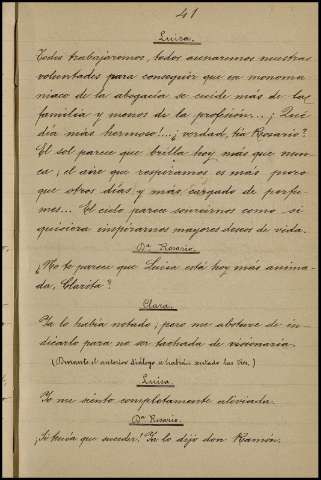 41
Luisa.
Todos trabajaremos, todos aunaremos nuestras
voluntades para conseguir que ese monoma
niaco de la abogacía se cuide más de la
familia y menos de la profesión... ¡Qué
día más hermoso!... ¿verdad, tía Rosario?
El sol parece que brilla hoy más que nun
ca; el aire que respiramos es más puro
que otros días y más cargado de perfu-
mes... El cielo parece sonreirnos como si
quisiera inspirarnos mayores deseos de vida.
Dª Rosario.
¿No te parece que Luisa está hoy más anima-
da, Clarita?
Clara.
Ya lo había notado; pero me abstuve de in-
dicarlo para no ser tachada de visionaria.
(Durante el anterior diálogo se habrán sentado las tres.)
Luisa.
Yo me siento completamente aliviada.
Dª Rosario.
¡Si tenía que suceder! Ya lo dijo don Ramón.